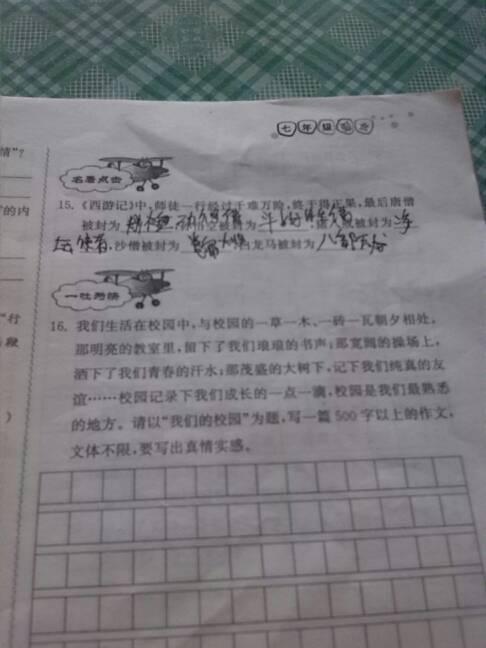 七年级语文
情"?
名著点击
的内
15.《西游记》中,师徒一行经过千难万险,终于得正果,最后唐僧
被封为 功德佛,悟空被封为 斗战胜佛,八戒被封为 净
坛使者,沙僧被封为 ,白龙马被封为 八部天龙
一吐为快
"行
段
)
16. 我们生活在校园中,与校园的一草一木、一砖一瓦朝夕相处,
那明亮的教室里,留下了我们琅琅的书声;那宽阔的操场上,
洒下了我们青春的汗水;那茂盛的大树下,记下我们纯真的友
谊……校园记录下我们成长的一点一滴,校园是我们最熟悉
的地方。请以"我们的校园"为题,写一篇 500 字以上的作文,
文体不限,要写出真情实感。